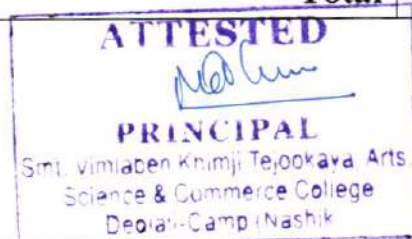 Total
ATTESTED
PRINCIPAL
Smt. Vimlaben Khimji Tejookaya, Arts
Science & Commerce College
Deolali-Camp (Nashik